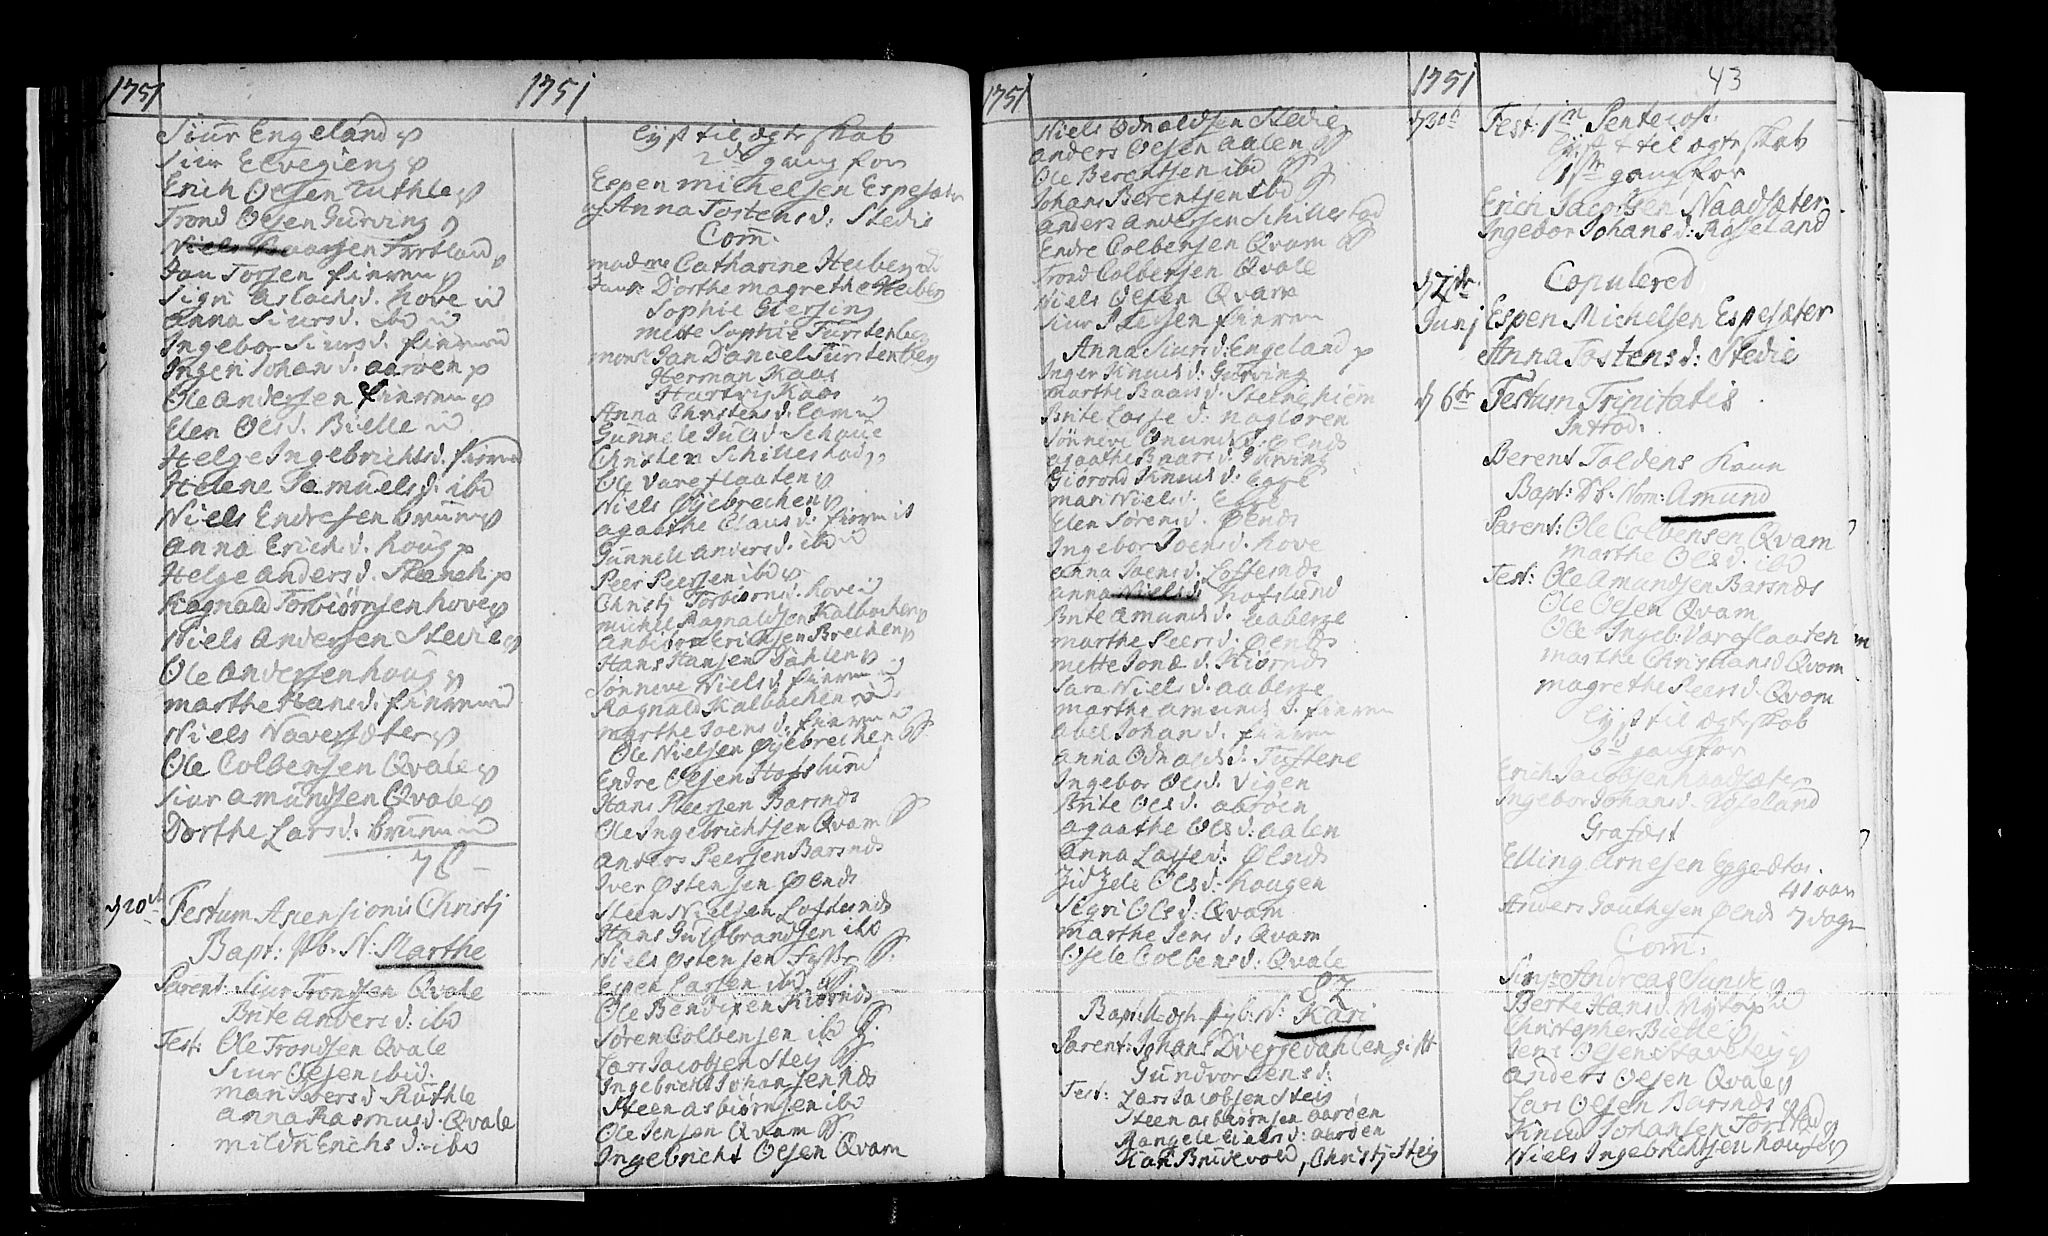 1751
Siur Engeland
Siur Elvegieng
Erich Olsen Ruthle
Trond Olsen Gurving
Niels
Jan Torsen finven
Sigri Aslachsd. hove
Anna Siursd. ibd
Ingebor Siursd. finven
Inger Johansd. aarøen
Ole Andersen finven
Elen Olsd. Bielle
Helge Ingebrichtsd. finven
Helene Samuelsd. ibd
Niels Endresen brunn
Anna Erichsd. houg
Helge Andersd. Steeneh
Ragnald Torbiørnsen hove
Niels Andersen Stedie
Ole Andersen houg
Marthe Hansd. finven
Niels Naversæter
Ole Colbensen Qvale
Siur Amundsen Qvale
Dorthe Larsd. brunn
78
d 20de
Festum Asensionis Christj
Bapt: pb. N: Marthe
Parent: Siur Trondsen Qvale
Brite Andersd: ibd
Test: Ole Trondsen Qvale
Siur Olsen ibid:
Mari Iversd Ruthle
Anna Rasmusd. Qvale
Mildri Erichsd: ibd
1751
Lyst til ægteskab
2de gang for
Espen Michelsen Espesæter
og Anna Tostensd: Stedie
Com:
madme Catharine Heiberg
Jomf: Dorthe Magrethe Heiberg
Sophie Giersing
Mette Sophie Fürstenberg
mons: Jan Daniel Fürstenberg
Herman Kaas
Hartvig Kaas
Anna Christensd. Lomen
Gunnele Julsd. Schaue
Christen Schillestad
Ole Vareflaaten
Niels Øyebrechen
Agaathe Clausd. finven
Gunnele Andersd. ibd
Peer Peersen ibd
Christj Torbiørnsd. hove
Michel Ragnaldsen Kalbachen
Anbiørn Erichsen Brechen
Hans Hansen Dahlen
Sønneve Nielsd. finven
Ragnald Kalbachen
Marthe Joensd. finven
Ole Nielsen Øyebrechen
Endre Olsen Hofslund
Hans Peersen Barsnes
Ole Ingebrichtsen Qvam
Anders Peersen Barsnes
Iver Østensen Ølnes
Steen Nielsen Loftesnes
Hans Guldbrandsen ibd
Niels Østensen
Espen Larsen ibd
Ole Bendixen Kiørnes
Søren Colbensen ibd
Lars Jacobsen Steig
Ingebricht Johansen Nes
Steen Asbiørnsen ibd
Ole Jensen Qvam
Ingebricht Olsen Qvam
1751
Niels Odnaldsen Stedie
Anders Olsen Aalen
Ole Berentsen ibd
Johans Berentsen ibd
Anders Andersen Schillestad
Endre Colbensen Qvam
Trond Colbensen Qvale
Niels Olsen Qvam
Siur Olsen finven
Anna Siursd: Engeland
Inger Knudsd: Gurving
Marthe Baarsd. Steinehiem
Brite Lassed: Nagløren
Sønneve Knudsd. Ølnes
Agaathe Baarsd. Gurving
Giorond Knudsd: Egge
Mari Nielsd. Egge
Elen Sørensd. Ølnes
Ingebor Joensd. hove
Anna Joensd. Loftesnes
Anna Nielsd. hofslund
Brite Amundsd. aaberge
Marthe Peersd. Ølnes
Mette Jonæd. Kiørnes
Sara Nielsd. aaberge
Marthe Amundsd. finven
Abel Johansd. finven
Anna Odnaldsd. Tustene
Ingebor Olsd. Vigen
Brite Olsd. aarøen
Agaathe Olsd: aalen
Anna Lassed. Ølnes
Zidzele Olsd: haugen
Sigri Olsd: Qvam
Marthe Jensd: Qvam
Osele Colbensd: Qvale
82
Bapt: N: Kari
Parent: Johans Dvergedahlen gift
Gundvor Jensd:
Test: Lars Jacobsen Steig
Steen Asbiørnsen aarøen
Rangele Nielsd: aarøen
Kari Bruevold, Christj Steig
1751
43
d 30de
Fest: 1m Pentecost:
Lyst til ægteskab
1ste gang for
Erich Jacobsen Naadsæter
Ingebor Johansd: Røseland
d 2den Junj
Copulered
Espen Michelsen Espesæter
Anna Tostensd: Stedie
d 6te
Festum Trinitatis
Introd:
Berent Toldens Kaan
Bapt: Nom: Amund
Parent: Ole Colbensen Qvam
Marthe Olsd: ibd
Test: Ole Amundsen Barsnes
Ole Olsen Qvam
Ole Ingeb: Vareflaaten
Marthe Christiansd Qvam
Magrethe Peersd. Qvam
Lyst til ægteskab
gang for
Erich Jacobsen Naadsæter
Ingebor Johansd: Røseland
Grafæst
Elling Arnesen Egge
41 aar
Anders Ølnes 7 dage
Com:
Andreas Sunde
Berte Hansd. Nytorp
Christopher Bielle
Jens Olsen Stavetey
Anders Olsen Qvale
Lars Olsen Barsnes
Knud Johansen Torstad
Niels Ingebrichtsen